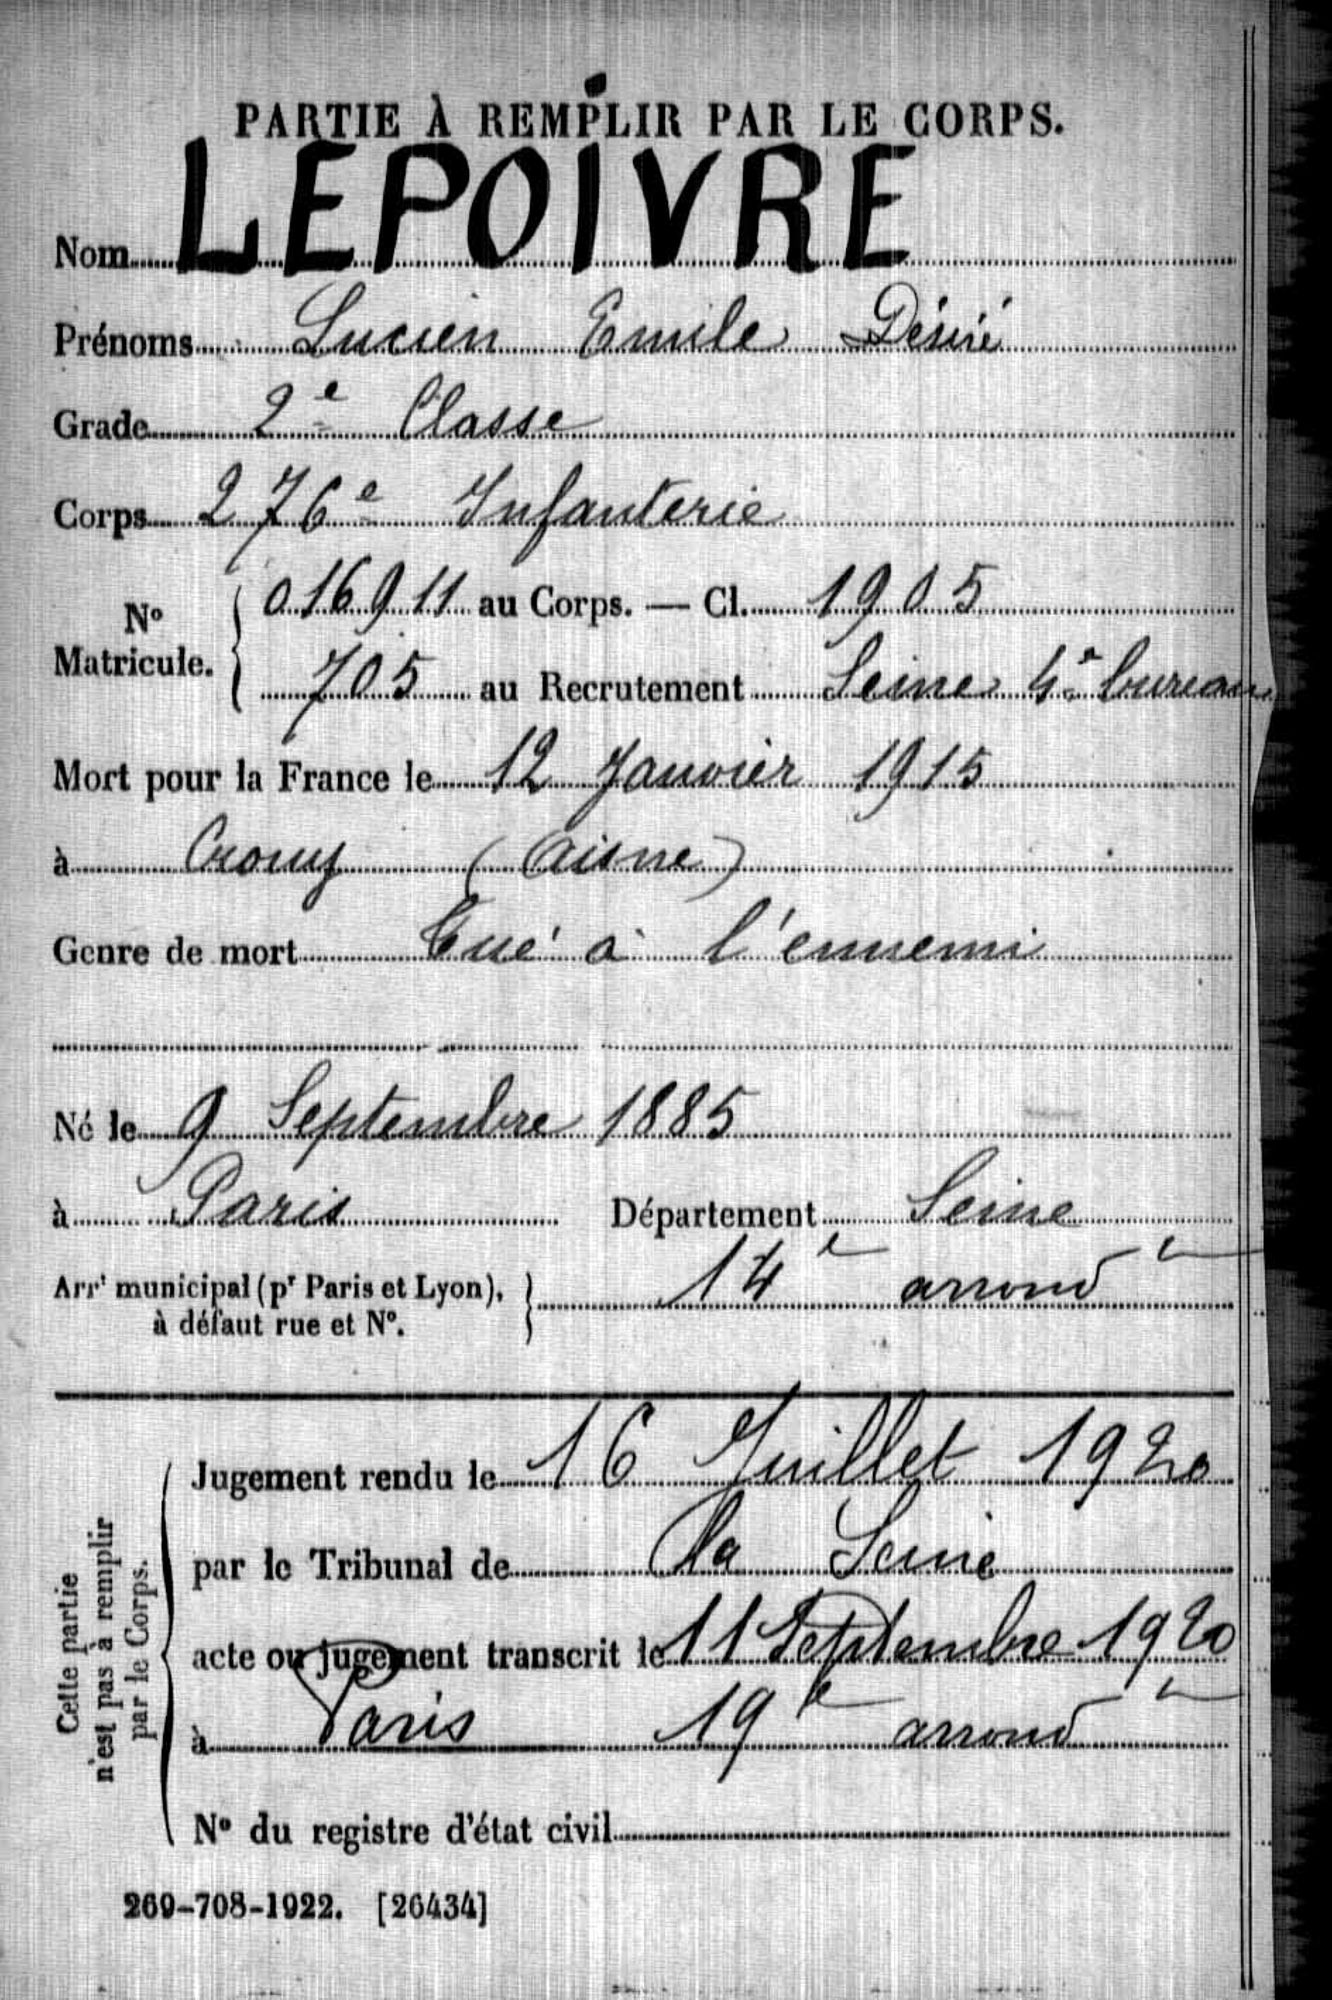 PARTIE À REMPLIR PAR LE CORPS.
Nom LEPOIVRE
Prénoms Lucien Emile Désiré
Grade 2e Classe
Corps 276e Infanterie
No Matricule. { 016911 au Corps. — Cl. 1905
705 au Recrutement Seine 4e bureau
Mort pour la France le 12 Janvier 1915
à Crouy (Aisne)
Genre de mort Tué à l'ennemi
Né le 9 Septembre 1885
à Paris Département Seine
Arrt municipal (pr Paris et Lyon), à défaut rue et No. } 14e arrondt
Cette partie n'est pas à remplir par le Corps.
Jugement rendu le 16 Juillet 1920
par le Tribunal de la Seine
acte ou jugement transcrit le 11 Septembre 1920
à Paris 19e arrondt
No du registre d'état civil
269-708-1922. [26434]